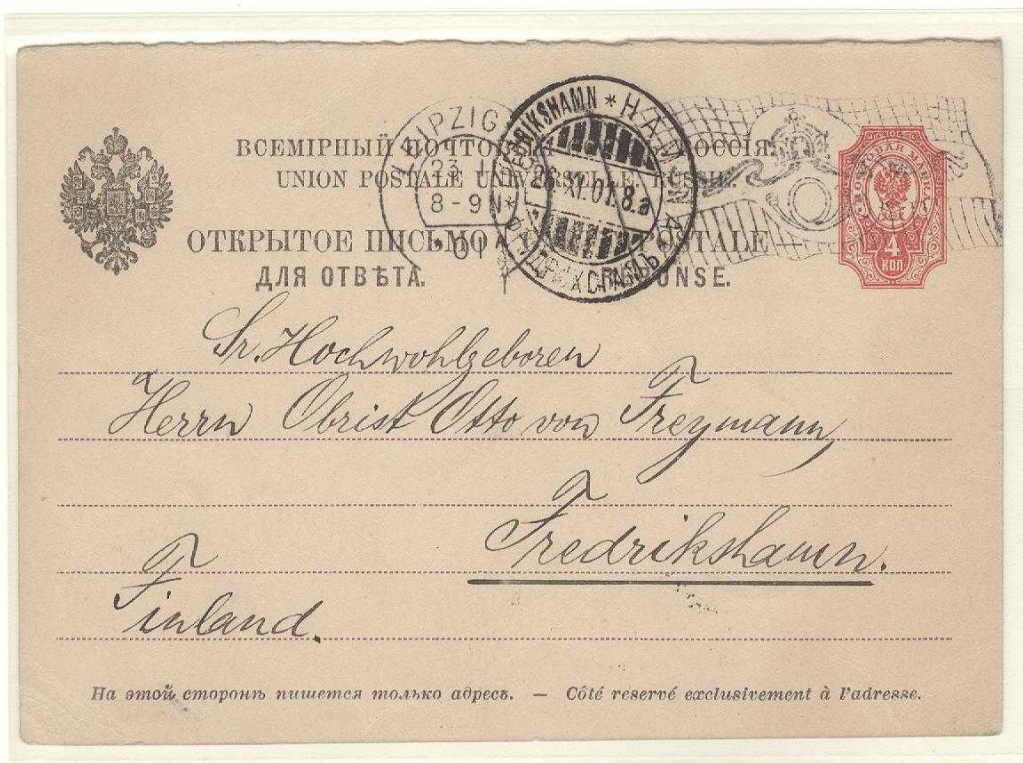 ВСЕМІРНЫЙ РОССІЯ.
UNION POSTALE
ОТКРЫТОЕ ПИСЬМО POSTALE
ДЛЯ ОТВѢТА.
LEIPZIG
23
8-9N*
01
FREDRIKSHAMN * HAMINA
26.XI.01.8.a
ФРИДРИХСГАМЪ
МАРКА
4
КОП
Sr. Hochwohlgeboren
Herrn Obrist Otto von Freymann,
Fredrikshamn.
Finland.
На этой сторонѣ пишется только адресъ. — Côté reservé exclusivement à l'adresse.